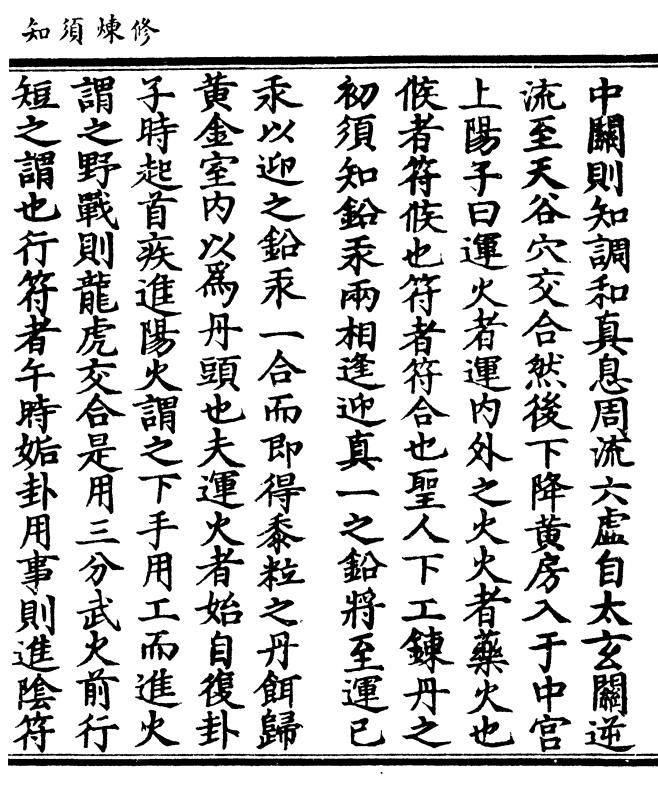 修煉須知
中關則知調和真息周流六虛自太玄關逆
流至天谷穴交合然後下降黃房入于中宮
上陽子曰運火者運內外之火火者藥火也
候者符候也符者符合也聖人下工鍊丹之
初須知鉛汞兩相逢迎真一之鉛將至運己
汞以迎之鉛汞一合而即得黍粒之丹餌歸
黃金室內以爲丹頭也夫運火者始自復卦
子時起首疾進陽火謂之下手用工而進火
謂之野戰則龍虎交合是用三分武火前行
短之謂也行符者午時姤卦用事則進陰符